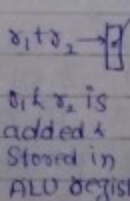 r₁+r₂→
r₁ & r₂ is
added &
Stored in
ALU regist